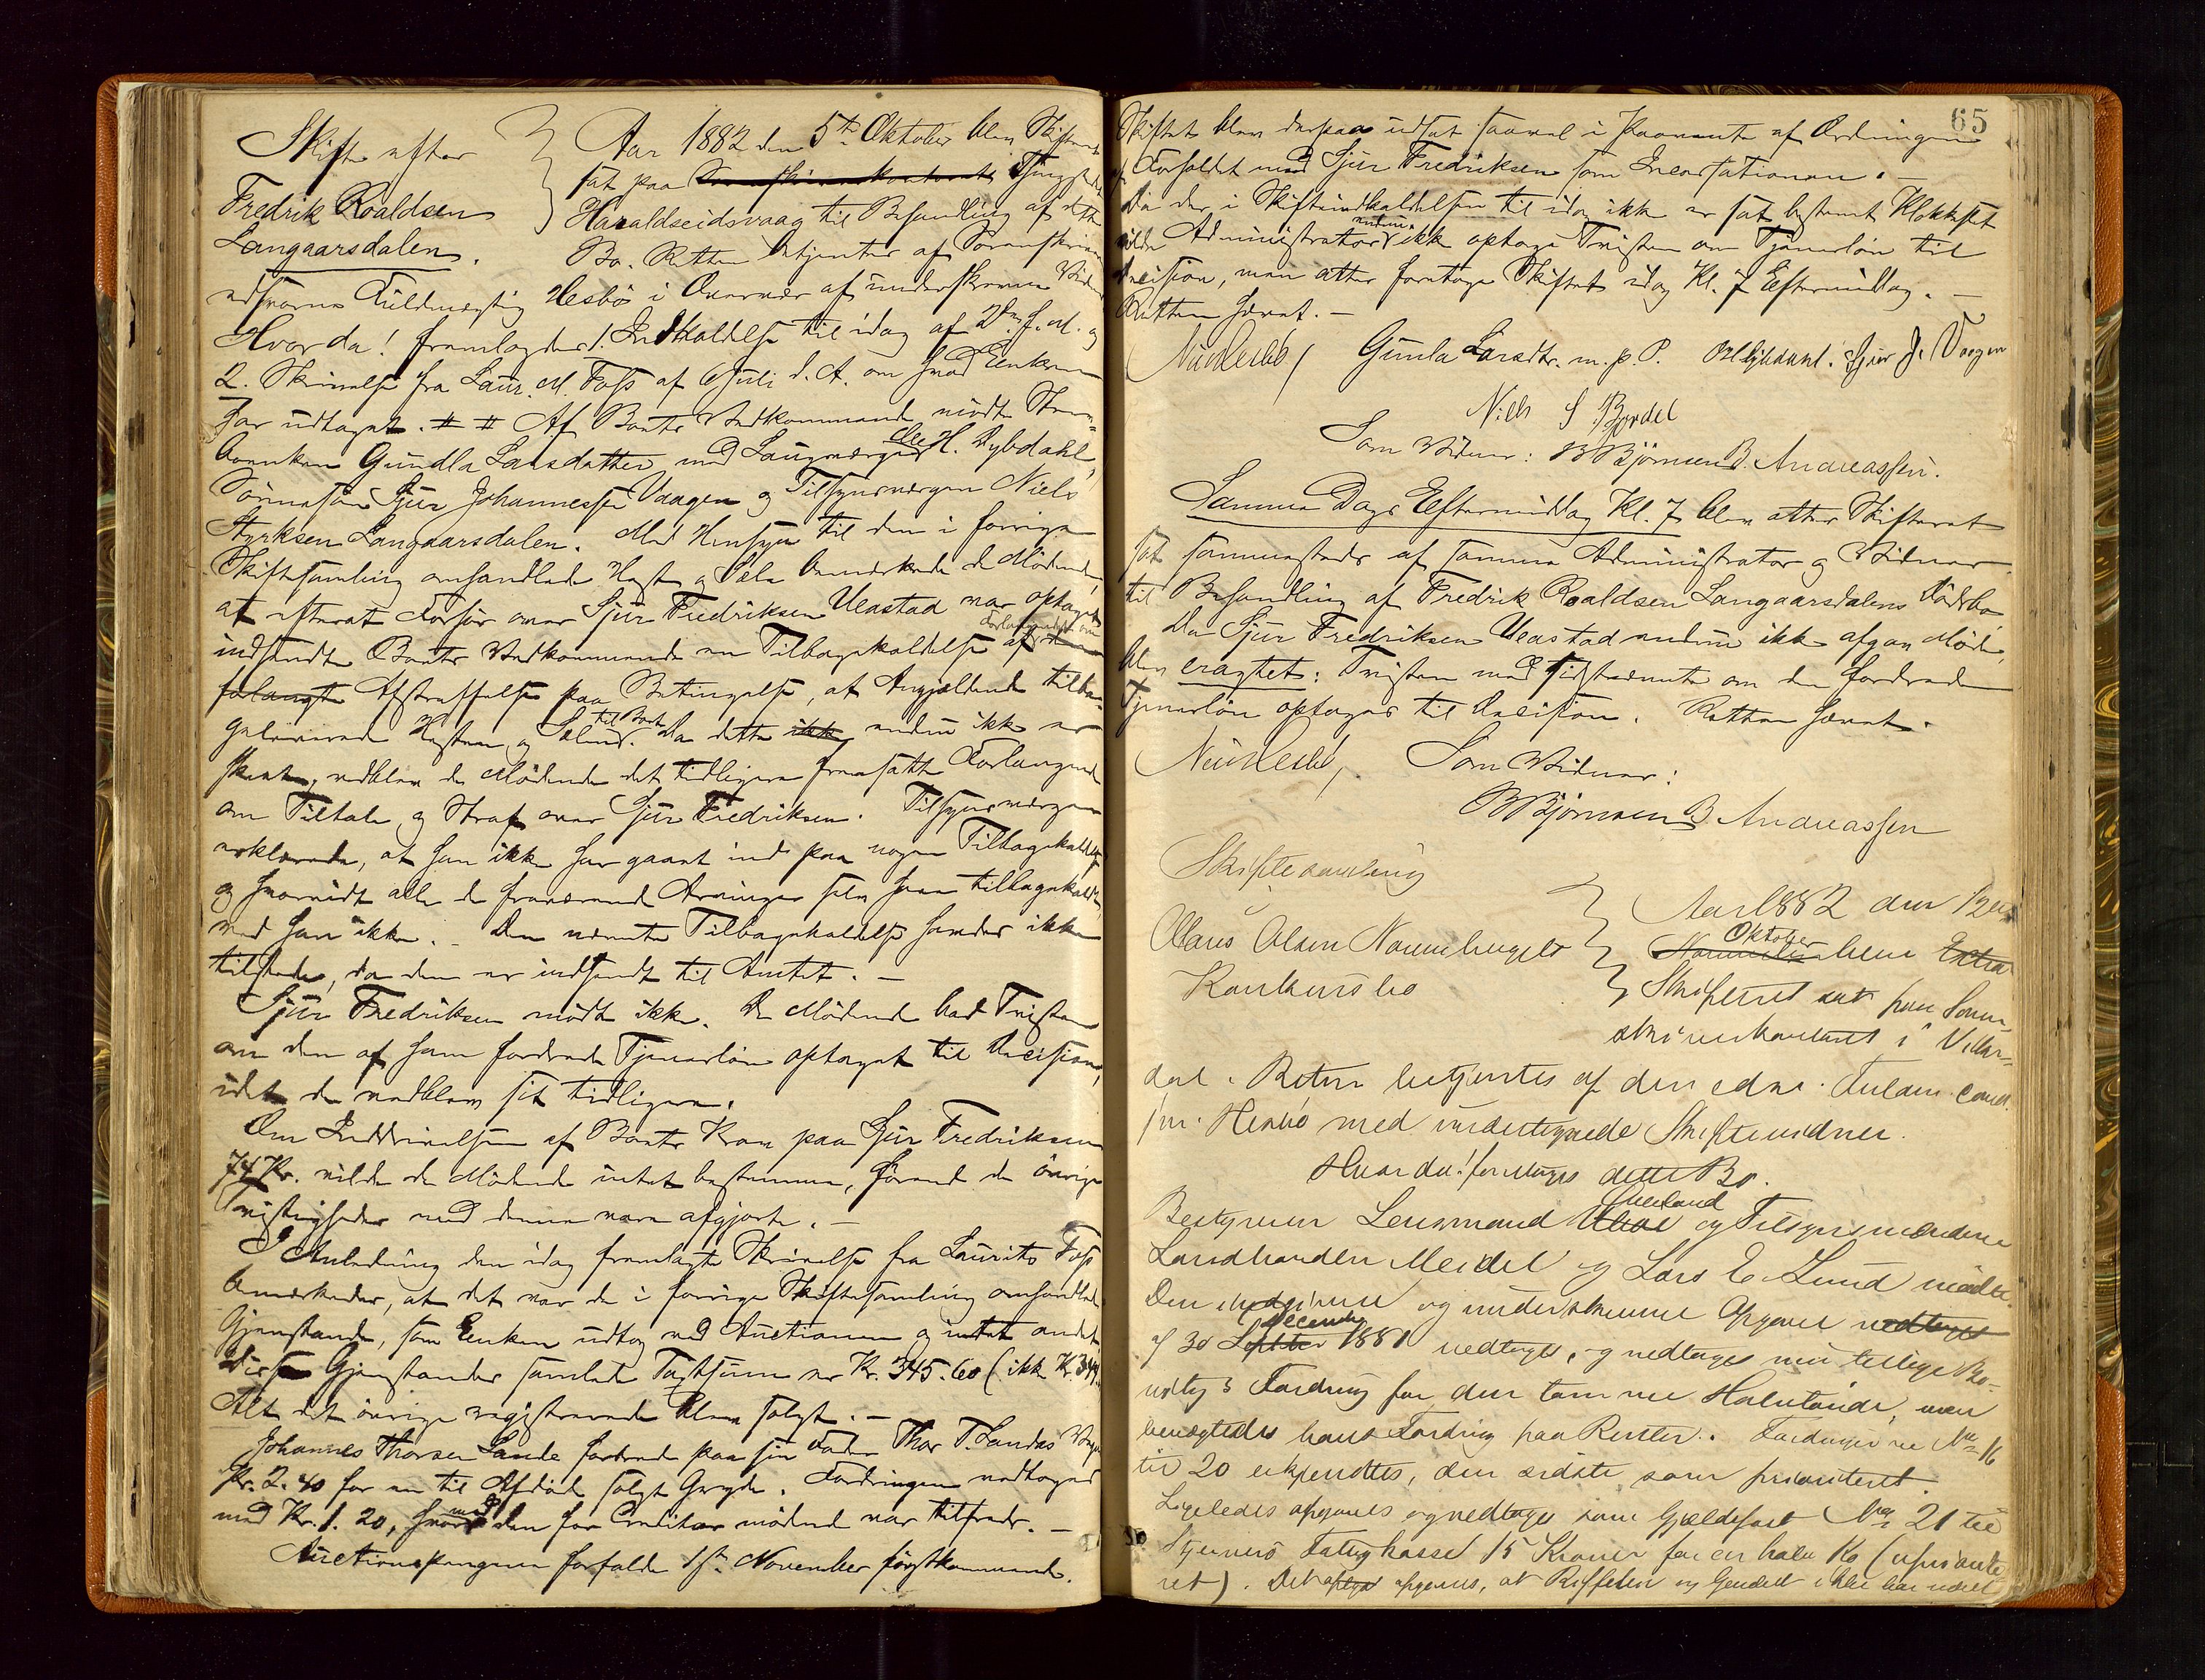 Skifte efter
Fredrik Roaldsen
Langaarsdalen.
Aar 1882 den 5te Oktober blev Skifteret
sat paa Sorenskriverkontoret Thingstedet
Haraldseidsvaag til Behandling af dette
Bo. Retten betjentes af Sorenskriverens
edsvorne Fuldmægtig Hesbö i Overvær af underskrevne Vidner
Hvorda! fremlagdes 1. Indkaldelse til idag af 2den f. M. og
2. Skrivelse fra Laur. M. Foss af 6 Juli d. A. om hvad Enken
har udtaget. # # Af Boets Vedkommende mödte Stervboenken
boenken Gundla Larsdatter med Laugværge Ole H. Dybdahl,
Sönnesön Sjur Johannessen Vaagen og Tilsynsværgen Niels
Styrksen Langaarsdalen. Med Hensyn til den i forrige
Skiftesamling omhandlede Hest og Sele bemærkede de Mödende,
at efterat Forhör over Sjur Fredriksen Ueastad var optaget
indsendte Boets Vedkommende en Tilbagekaldelse af den
forlangte Afstraffelse paa Betingelse, at Angjældende tilba-
geleverede Hesten og Selen til Boet. Da dette ikke endnu ikke er
skeet, vedblev de Mödende det tidligere fremsatte Forlangende
om Tiltale og Straf over Sjur Fredriksen. Tilsynsværgen
erklærede, at han ikke har gaaet ind paa nogen Tilbagekaldelse
og hvorvidt alle de fraværende Arvinger selv have tilbagekaldt,
ved han ikke. – Den nævnte Tilbagekaldelse havdes ikke
tilstede, da den er indsendt til Amtet. –
Sjur Fredriksen mödte ikke. De Mödende bad Tvisten
om den af ham fordrede Tjenerlön optaget til Decision,
idet de vedblev sit tidligere.
Om Inddrivelsen af Boets Krav paa Sjur Fredriksen
74 Kr. vilde de Mödende intet bestemme, förend de övrige
Tvistigheder med denne vare afgjorte. –
I Anledning den idag fremlagte Skrivelse fra Laurits Foss
bemærkedes, at det var de i forrige Skiftesamling omhandlede
Gjenstande, som Enken udtog ved Auctionen og intet andet
Disse Gjenstandes samlede Taxtsum er Kr. 345.60 (ikke Kr. 344
Alt det övrige registrerede blev solgt. –
Johannes Thorsen Lande fordrede paa sin Fader Thor T. Landes Vegne
Kr. 2.40 for en til Afdöde solgt Gryde. Fordringen vedtoges
med Kr. 1.20, hvormed den for Creditor mödende var tilfreds. –
Auctionspengene forfalde 1ste November förstkommende.
65
Skiftet blev derpaa udsat saavel i Paavente af Ordningen
af Forholdet med Sjur Fredriksen som Incassationen. –
Da der i Skifteindkaldelsen til idag ikke er sat bestemt Klokkeslet
vilde Administrator endnu ikke optage Tvisten om Tjenerlön til
Decision, men atter foretage Skiftet idag Kl. 7 Eftermiddag. –
Retten hævet. –
Gunla Larsdtr. m. p. P. Sjur J. Vaagen
Niels S Byrdel
Som Vidner: B Bjørnsen B. Andreassen.
Samme Dags Eftermiddag Kl. 7 blev atter Skifteret
sat sammesteds af samme Administrator og Vidner
til Behandling af Fredrik Roaldsen Langaarsdalens Dödsbo
Da Sjur Fredriksen Ueastad endnu ikke afgav Möde,
blev eragtet: Tvisten med Sidstnævnte om den fordrede
Tjenerlön optages til Decision. Retten hævet.
Som Vidner:
B Bjørnsen B Andreassen
Skiftesamling
Konkursbo
Aar 1882 den 12te
Oktober blev Extra
Skifteret sat paa Soren-
skriverkontoret i Vikør-
dal. Retten betjentes af den edsv. Fuldm. cand.
jur. Hesbö med undertegnede Skiftevidner.
Hvorda! foretoges dette Bo.
Bestyreren Lensmand og Tilsynsmændene
Landhandler Meidel og Lars E. Lund mödte.
og underskrevne Opgave vedtages
af 30 December 1881 vedtoges, og vedtoges
Fordring for den tomme men
benægtedes hans Fordring paa Renter. Fordringerne No 16
til 20 erkjendtes, den sidste som prioriteret.
Ligeledes opgaves og vedtoges som Gjældspost No 21 til
Fattigkasse 15 Kroner for en halv Ko (uprioriteret
ret). Det opgaves, at